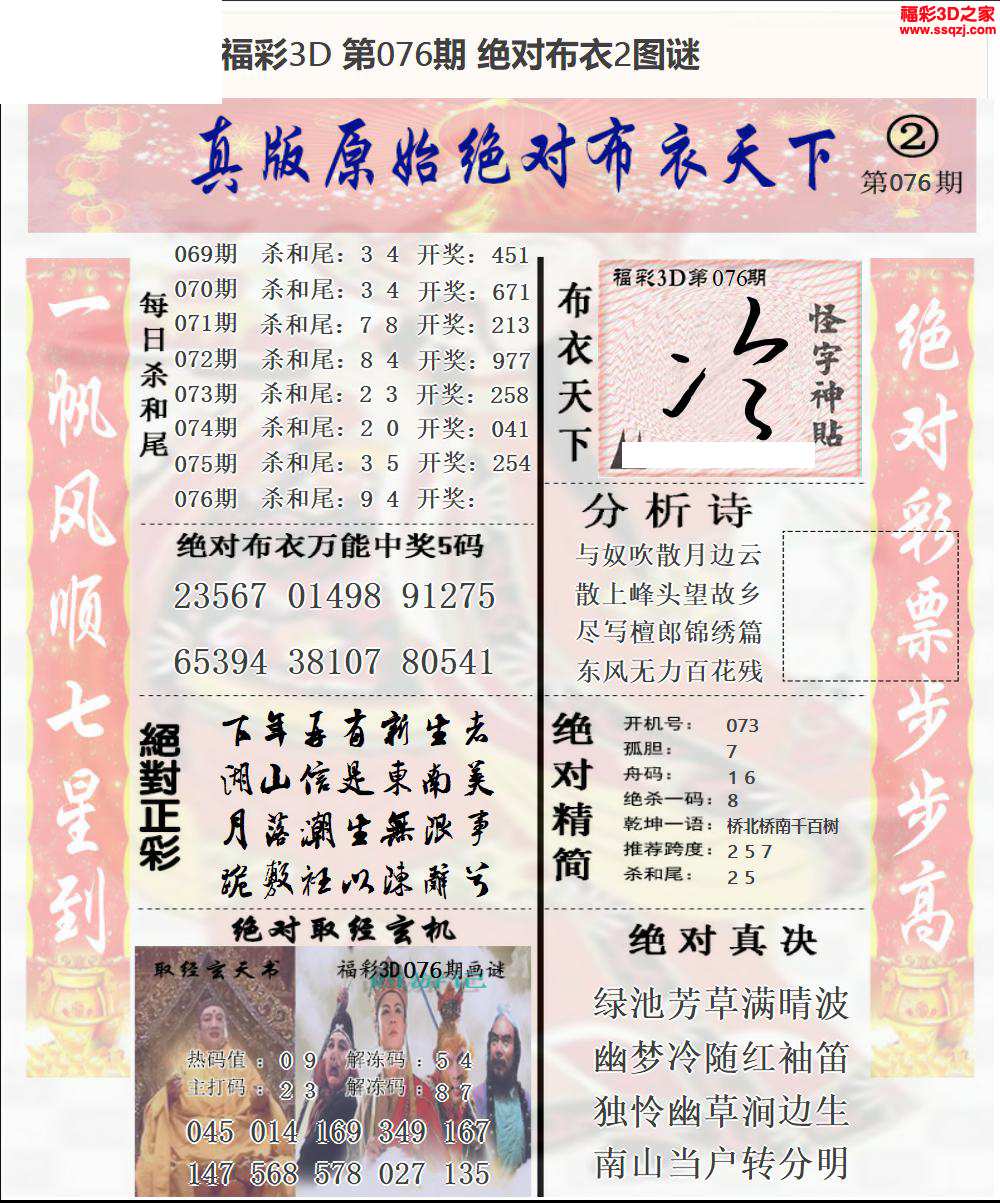 福彩3D之家
www.ssqzj.com
福彩3D 第076期 绝对布衣2图谜
真版原始绝对布衣天下
②
第076期
一帆风顺七星到
每日杀和尾
069期 杀和尾：3 4 开奖：451
070期 杀和尾：3 4 开奖：671
071期 杀和尾：7 8 开奖：213
072期 杀和尾：8 4 开奖：977
073期 杀和尾：2 3 开奖：258
074期 杀和尾：2 0 开奖：041
075期 杀和尾：3 5 开奖：254
076期 杀和尾：9 4 开奖：
绝对布衣万能中奖5码
23567 01498 91275
65394 38107 80541
絕對正彩
下年再有新生者
湖山信是東南美
月落潮生無限事
跪敷衽以陳辭兮
绝对取经玄机
取经玄天书
福彩3D076期画谜
热码值：0 9 解冻码：5 4
主打码：2 3 解冻码：8 7
045 014 169 349 167
147 568 578 027 135
布衣天下
福彩3D第076期
冷
怪字神貼
分析诗
与奴吹散月边云
散上峰头望故乡
尽写檀郎锦绣篇
东风无力百花残
绝对精简
开机号：073
孤胆：7
舟码：1 6
绝杀一码：8
乾坤一语：桥北桥南千百树
推荐跨度：2 5 7
杀和尾：2 5
绝对真决
绿池芳草满晴波
幽梦冷随红袖笛
独怜幽草涧边生
南山当户转分明
绝对彩票步步高